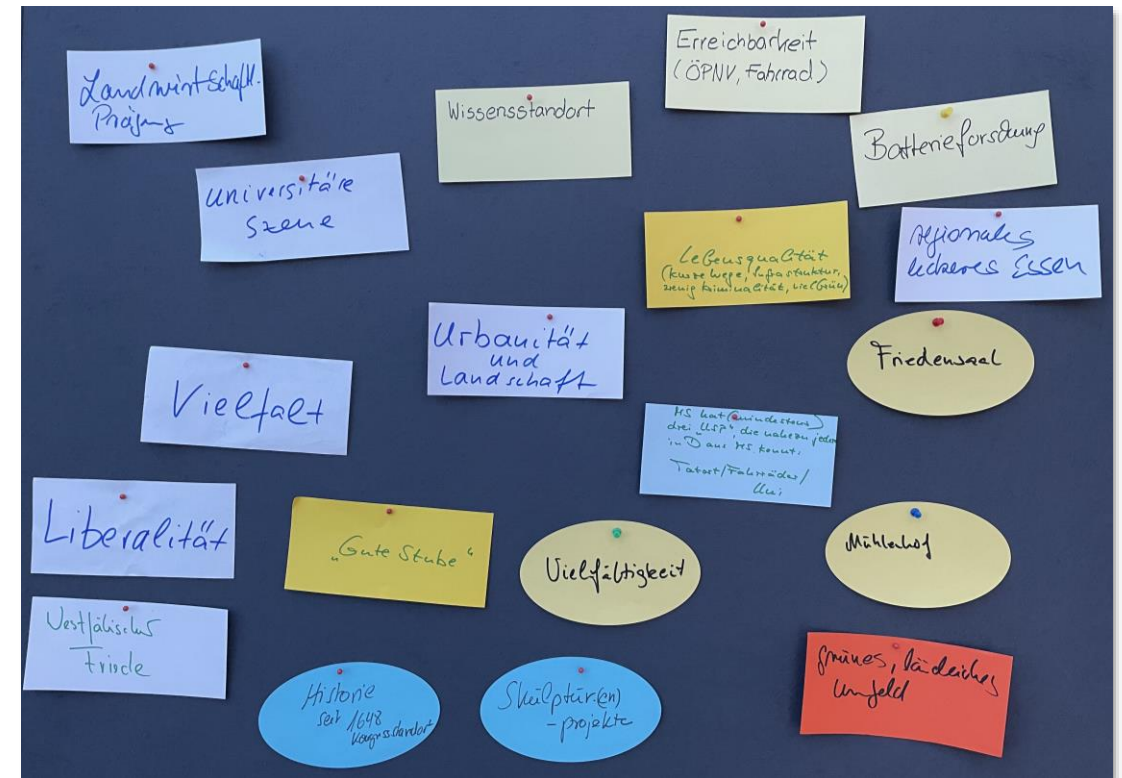 Landwirtschaftl.
Prägung
Universitäre
Szene
Wissensstandort
Erreichbarkeit
(ÖPNV, Fahrrad)
Batterieforschung
Lebensqualität
(kurze Wege, Infrastruktur,
wenig Kriminalität, viel Grün)
regionales
leckeres Essen
Urbanität
und
Landschaft
Friedensaal
Vielfalt
MS hat (mindestens)
drei „USP“, die nahezu jeder
in D aus MS kennt.
Tatort/Fahrräder/
Uni
Liberalität
„Gute Stube“
Vielfältigkeit
Mühlenhof
Westfälischer
Friede
Historie
seit 1648
Kongressstandort
Skulptur(en)
-projekte
grünes, ländliches
Umfeld